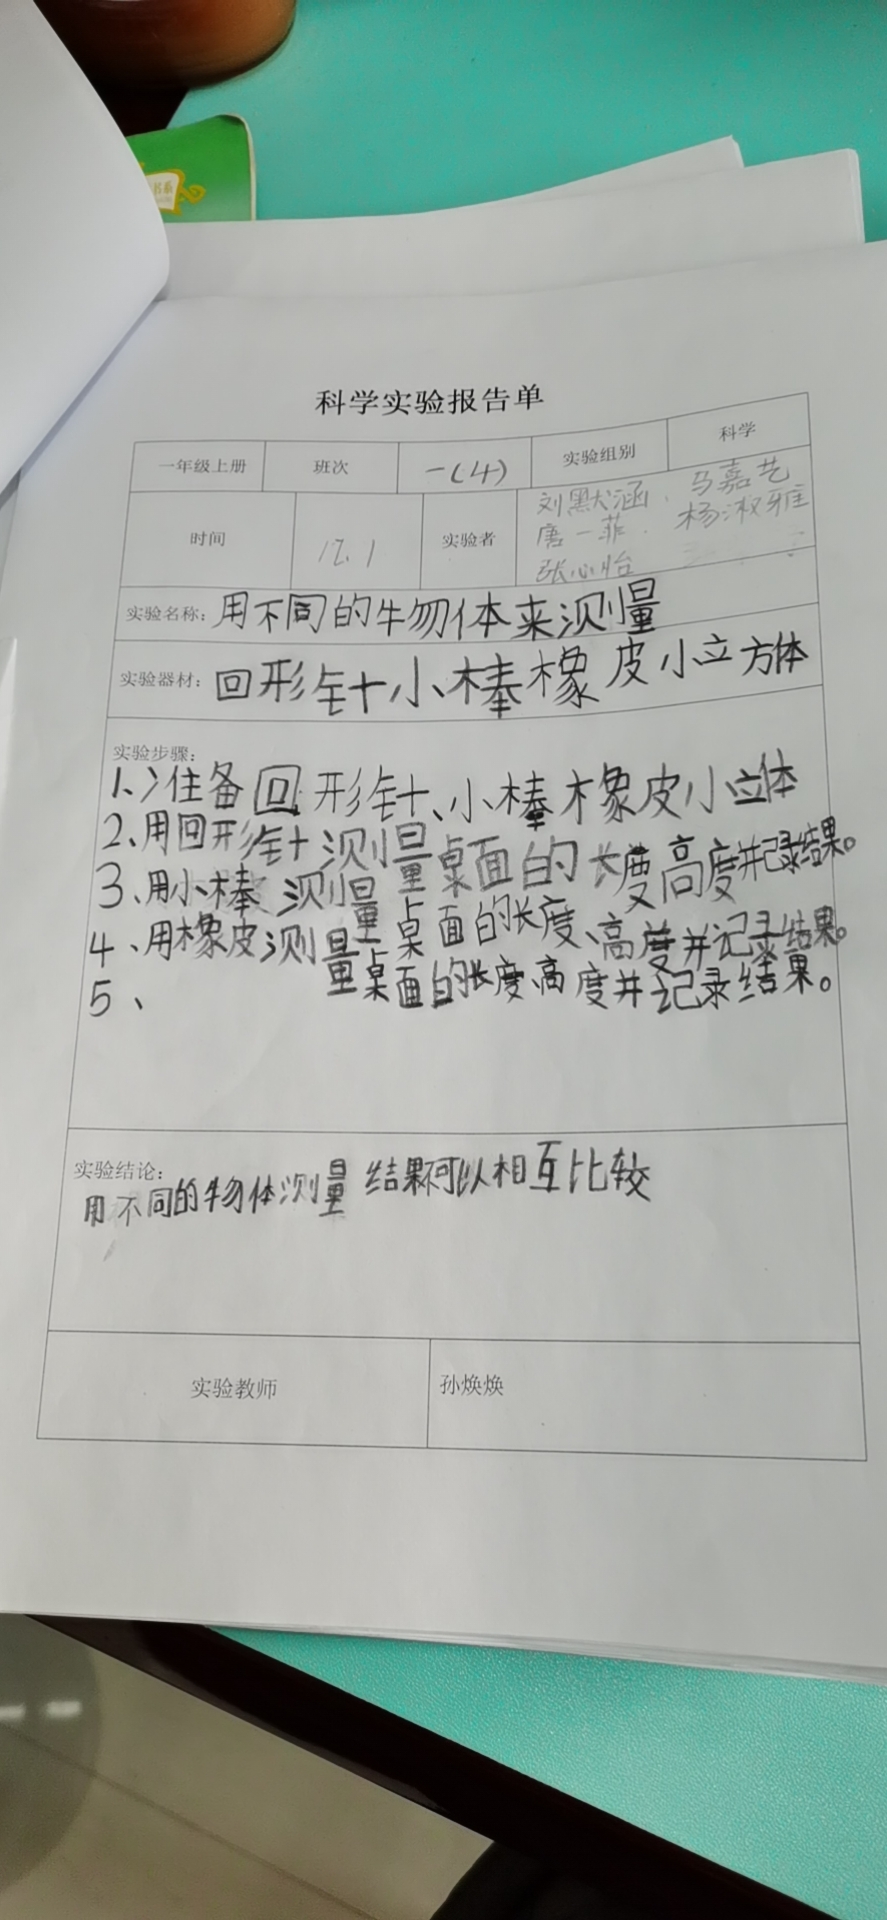 书系
科学实验报告单
一年级上册 班次 一(4) 实验组别 科学
时间 12.1 实验者 刘默涵、马嘉艺
唐一菲. 杨淑雅
张心怡
实验名称：用不同的物体来测量
实验器材：回形针小棒橡皮小立方体
实验步骤：
1、准备回形针、小棒橡皮小立体
2、用回形针测量桌面的长度高度并记录结果。
3、用小棒测量桌面的长度、高度并记录结果。
4、用橡皮测量桌面的长度、高度并记录结果。
5、
实验结论：
用不同的物体测量 结果可以相互比较
实验教师 孙焕焕